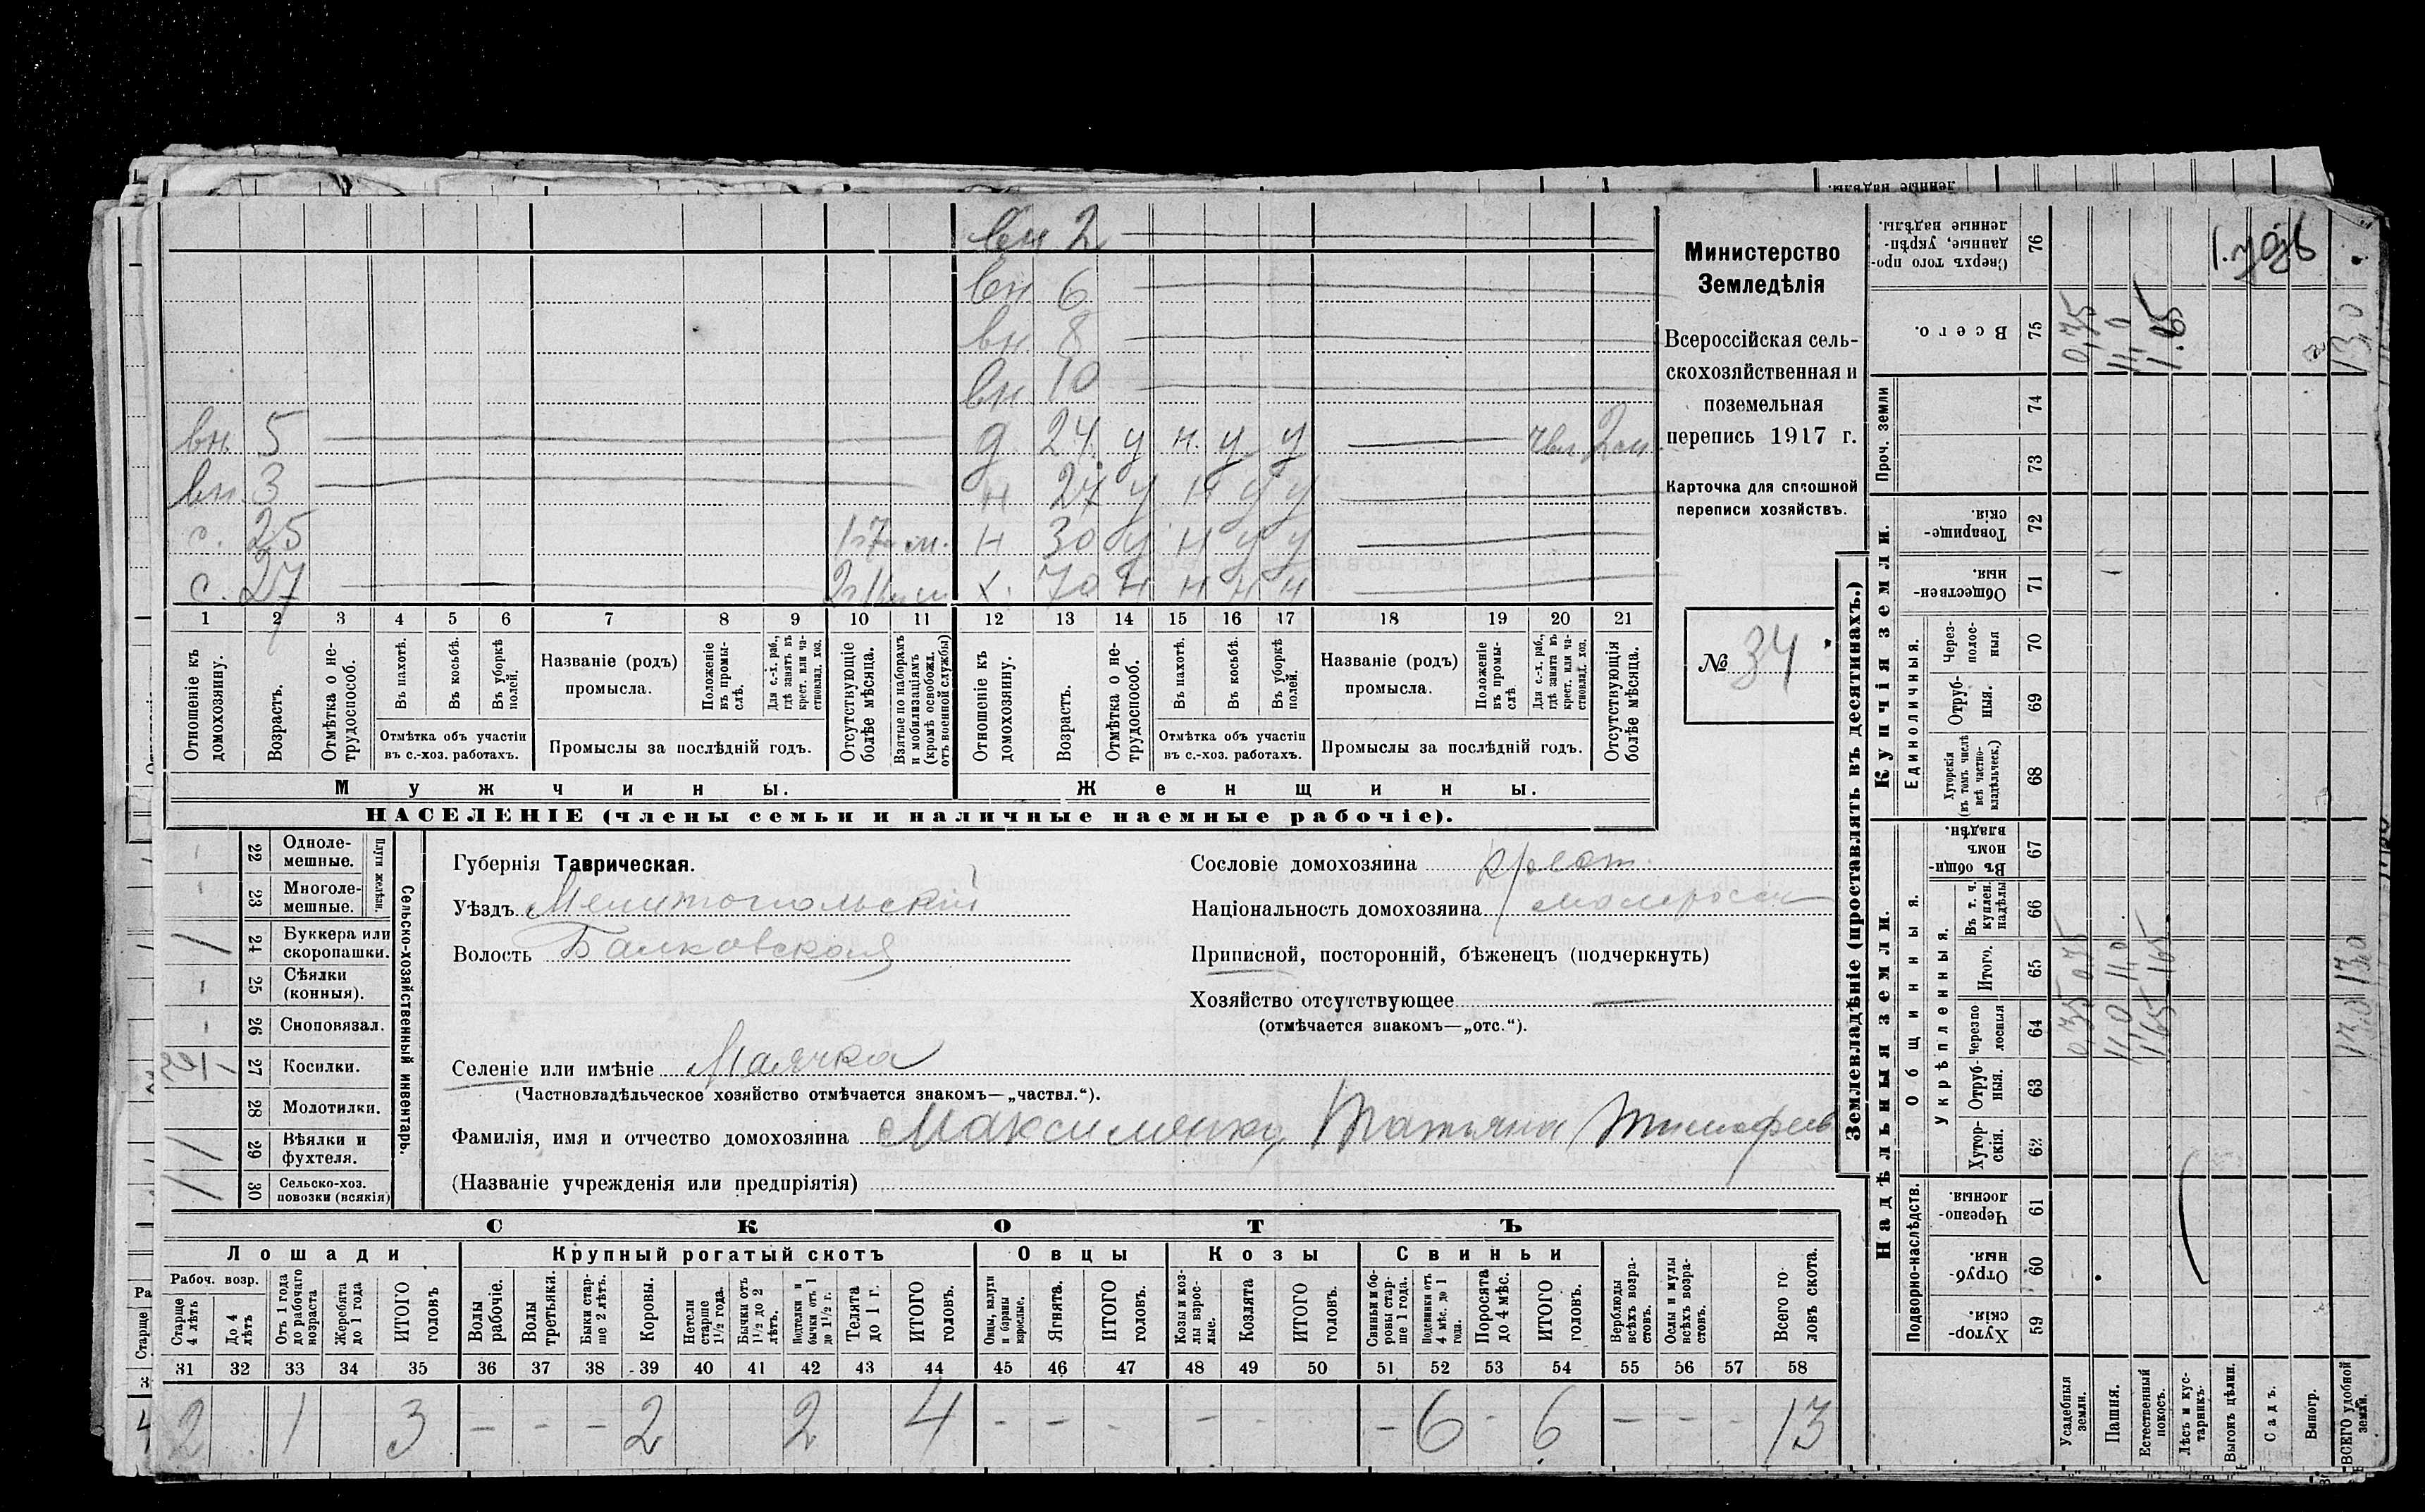 вн 2
вн 6
вн 8
вн 10
вн. 5 д. 24 у н. у у
вн 3 н 24 у н у у
с. 25 н 30 у н у у
с. 27 х. 70 н н н н
1 2 3 4 5 6 7 8 9 10 11 12 13 14 15 16 17 18 19 20 21
Отношеніе къ домохозяину.
Возрастъ.
Отмѣтка о не-трудоспособ.
Въ пахотѣ.
Въ косьбѣ.
Въ уборкѣ полей.
Отмѣтка объ участіи въ с.-хоз. работахъ.
Названіе (родъ) промысла.
Положеніе въ промы-слѣ.
Для с.-х. раб., гдѣ занятъ въ крест. или ча-стновлад. хоз.
Промыслы за послѣдній годъ.
Отсутствующіе болѣе мѣсяца.
Взятые по наборамъ и мобилизаціямъ (кромѣ освобожд. отъ военной службы)
Отношеніе къ домохозяину.
Возрастъ.
Отмѣтка о не-трудоспособ.
Въ пахотѣ.
Въ косьбѣ.
Въ уборкѣ полей.
Отмѣтка объ участіи въ с.-хоз. работахъ.
Названіе (родъ) промысла.
Положеніе въ промы-слѣ
Для с.-х. раб., гдѣ занята въ крест. или ча-стновлад. хоз.
Промыслы за послѣдній годъ.
Отсутствующія болѣе мѣсяца.
Мужчины.
Женщины.
НАСЕЛЕНІЕ (члены семьи и наличные наемные рабочіе).
Министерство
Земледѣлія
Всероссійская сель-
скохозяйственная и
поземельная
перепись 1917 г.
Карточка для сплошной
переписи хозяйствъ.
№ 34
22 Одноле-мешные.
23 Многоле-мешные.
Плуги желѣзн.
24 Буккера или скоропашки.
25 Сѣялки (конныя).
26 Сноповязал.
27 Косилки.
28 Молотилки.
29 Вѣялки и фухтеля.
30 Сельско-хоз. повозки (всякія)
Сельско-хозяйственный инвентарь.
Губернія Таврическая.
Уѣздъ Мелитопольскій
Волость Балковская
Сословіе домохозяина
Національность домохозяина малоросс
Приписной, посторонній, бѣженецъ (подчеркнуть)
Хозяйство отсутствующее
(отмѣчается знакомъ—„отс.“).
Селеніе или имѣніе Маячка
(Частновладѣльческое хозяйство отмѣчается знакомъ—„частвл.“).
Фамилія, имя и отчество домохозяина Максименко Татьяна Тимофеев
(Названіе учрежденія или предпріятія)
СКОТЪ
Лошади
Рабоч. возр.
Старше 4 лѣтъ
До 4 лѣтъ
Отъ 1 года до рабочаго возраста
Жеребята до 1 года
ИТОГО головъ
Крупный рогатый скотъ
Волы рабочіе.
Волы третьяки.
Быки стар-ше 2 лѣтъ.
Коровы.
Нетели старше 1½ года.
Бычки отъ 1½ до 2 лѣтъ.
Подтелки и бычки отъ 1 до 1½ г.
Телята до 1 г.
ИТОГО головъ.
Овцы
Овцы, валухи и бараны взрослые.
Ягнята.
ИТОГО головъ.
Козы
Козы и коз-лы взрос-лые.
Козлята
ИТОГО головъ.
Свиньи
Свиньи и бо-ровы стар-ше 1 года.
Подсвинки отъ 4 мѣс. до 1 года.
Поросята до 4 мѣс.
ИТОГО головъ.
Верблюды всѣхъ возра-стовъ.
Ослы и мулы всѣхъ возра-стовъ.
Всего го-ловъ скота.
31 32 33 34 35 36 37 38 39 40 41 42 43 44 45 46 47 48 49 50 51 52 53 54 55 56 57 58
2 1 3 – – – 2 2 4 - - - - - - 6 - 6 – - - 13
Землевладѣніе (проставлять въ десятинахъ.)
Надѣльныя земли.
Подворно-наслѣдств.
Хутор-скія. 59
Отруб-ныя. 60
Черезпо-лосныя. 61
Общинныя.
Укрѣпленныя.
Хутор-скія. 62
Отруб-ныя. 63
Черезпо-лосныя 64
Итого. 65
Въ т. ч. куплен. надѣлы 66
Въ общи-номъ владѣн. 67
Купчія земли.
Единоличныя.
Хуторскія (въ томъ числѣ всѣ частно-владѣльческ.) 68
Отруб-ныя. 69
Через-полос-ныя 70
Обществен-ныя. 71
Товарище-скія. 72
Проч. земли
73 74
Всего. 75
Сверхъ того про-данные, укрѣп-ленные надѣлы. 76
Усадебныя земли. 0,35 0,75
Пашня. 11,0 11,0
Естественный покосъ. 1,65 1,65 1.65
Лѣсъ и кус-тарникъ.
Выгонъ цѣлин.
Садъ.
Виногр.
ВСЕГО удобной земли. 13,0 13,0 13,0